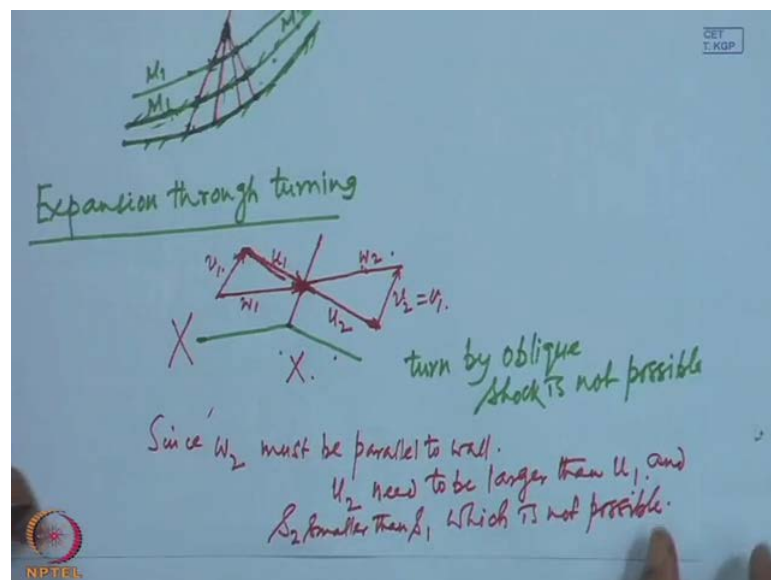 CET
T. KGP
M₁
M₂
Expansion through turning
v₁ u₁ w₂
w₁ u₂ v₂ = v₁
X
X
turn by oblique
shock is not possible
Since w₂ must be parallel to wall.
u₂ need to be larger than u₁ and
s₂ smaller than s₁ which is not possible.
NPTEL